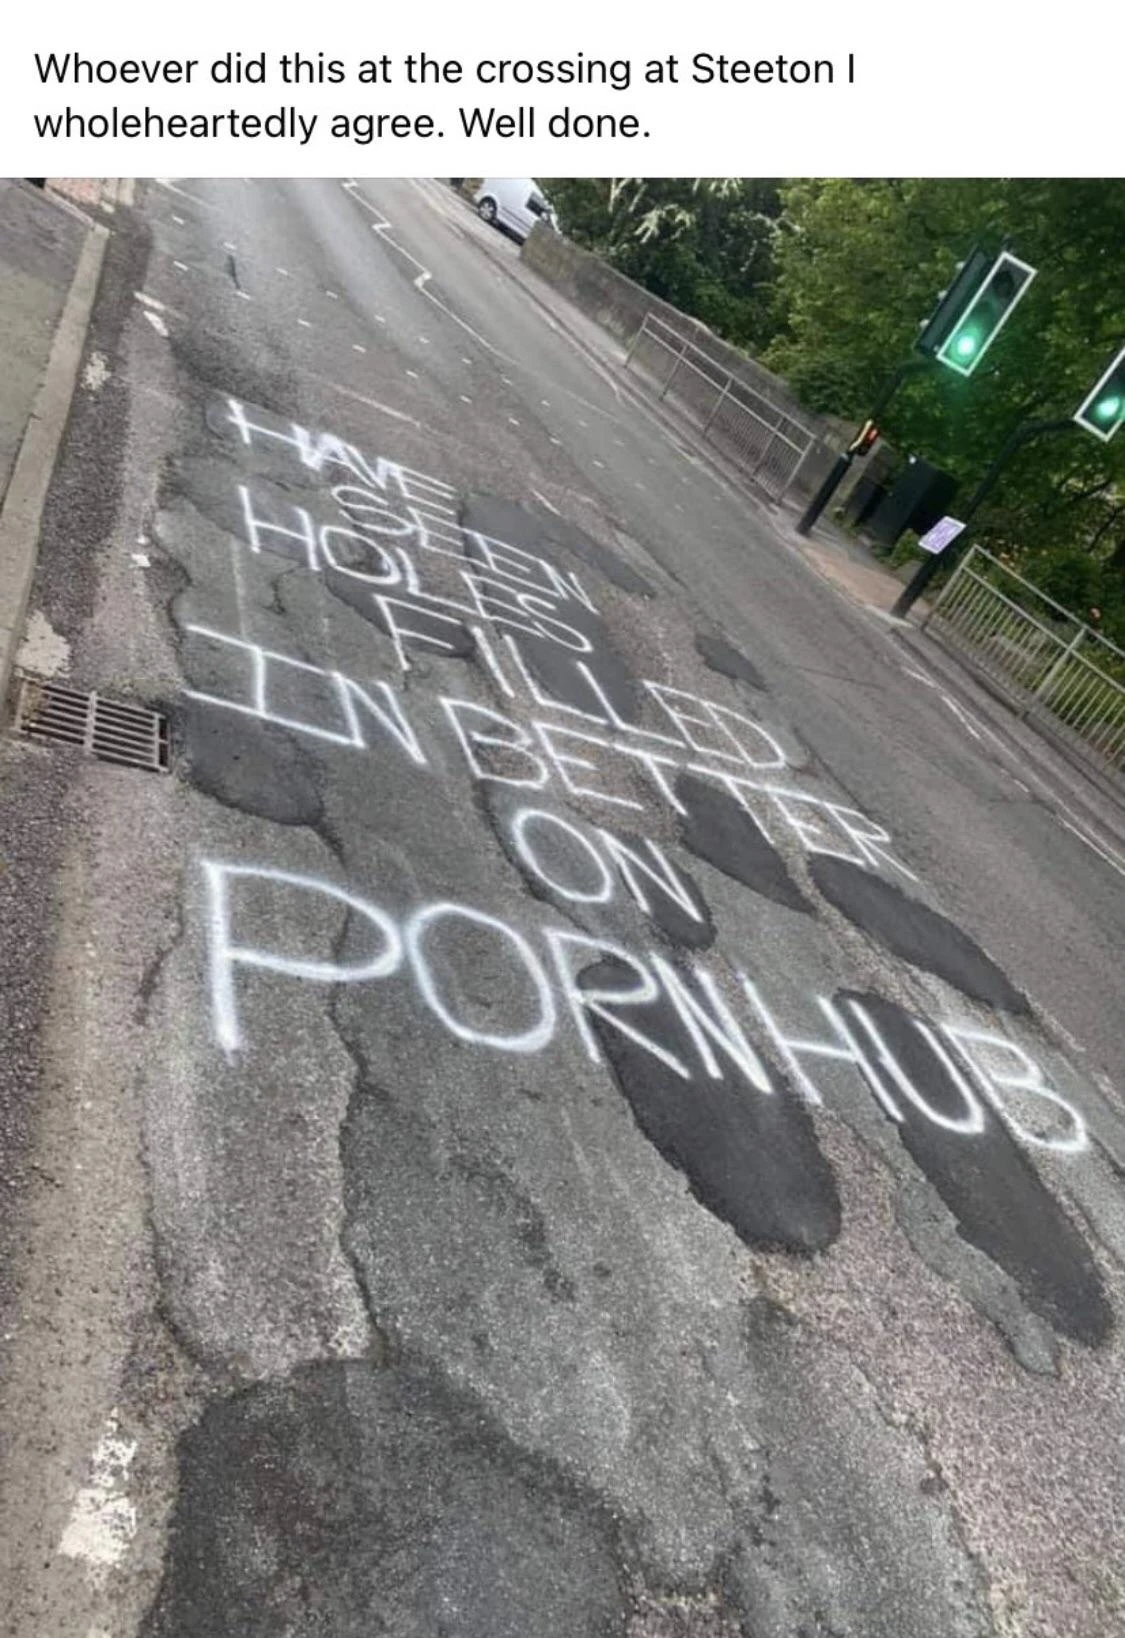 Whoever did this at the crossing at Steeton I
wholeheartedly agree. Well done.
HAVE
SEEN
HOLES
FILLED
IN BETTER
ON
PORNHUB